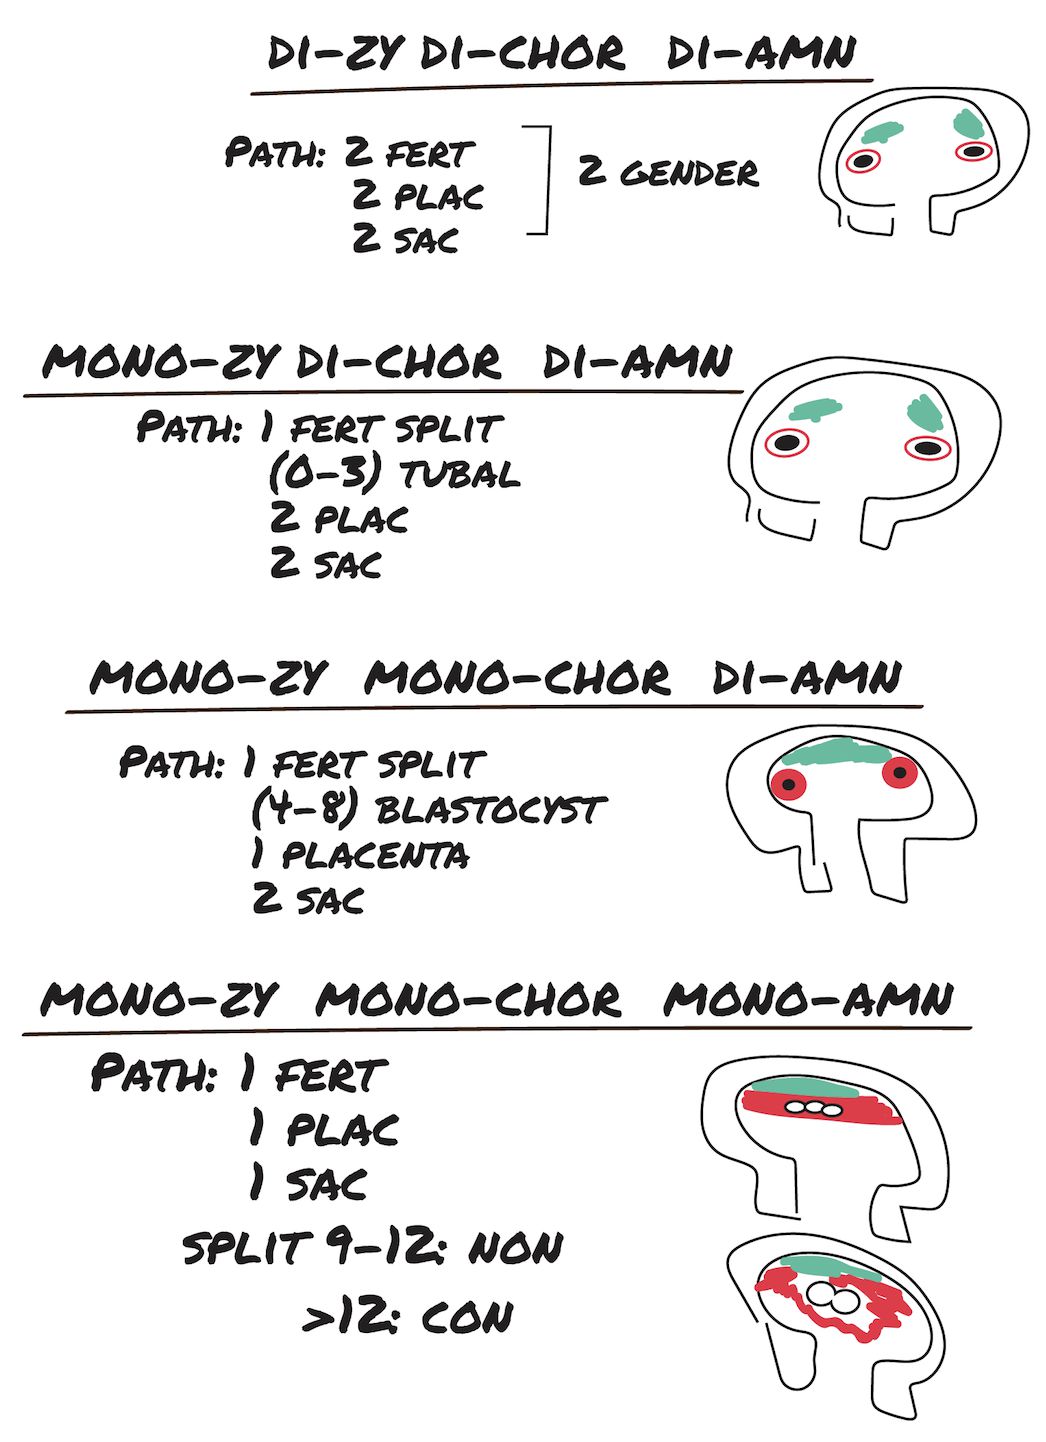 DI-ZY DI-CHOR DI-AMN
PATH: 2 FERT
2 PLAC
2 SAC
2 GENDER
MONO-ZY DI-CHOR DI-AMN
PATH: 1 FERT SPLIT
(0-3) TUBAL
2 PLAC
2 SAC
MONO-ZY MONO-CHOR DI-AMN
PATH: 1 FERT SPLIT
(4-8) BLASTOCYST
1 PLACENTA
2 SAC
MONO-ZY MONO-CHOR MONO-AMN
PATH: 1 FERT
1 PLAC
1 SAC
SPLIT 9-12: NON
>12: CON